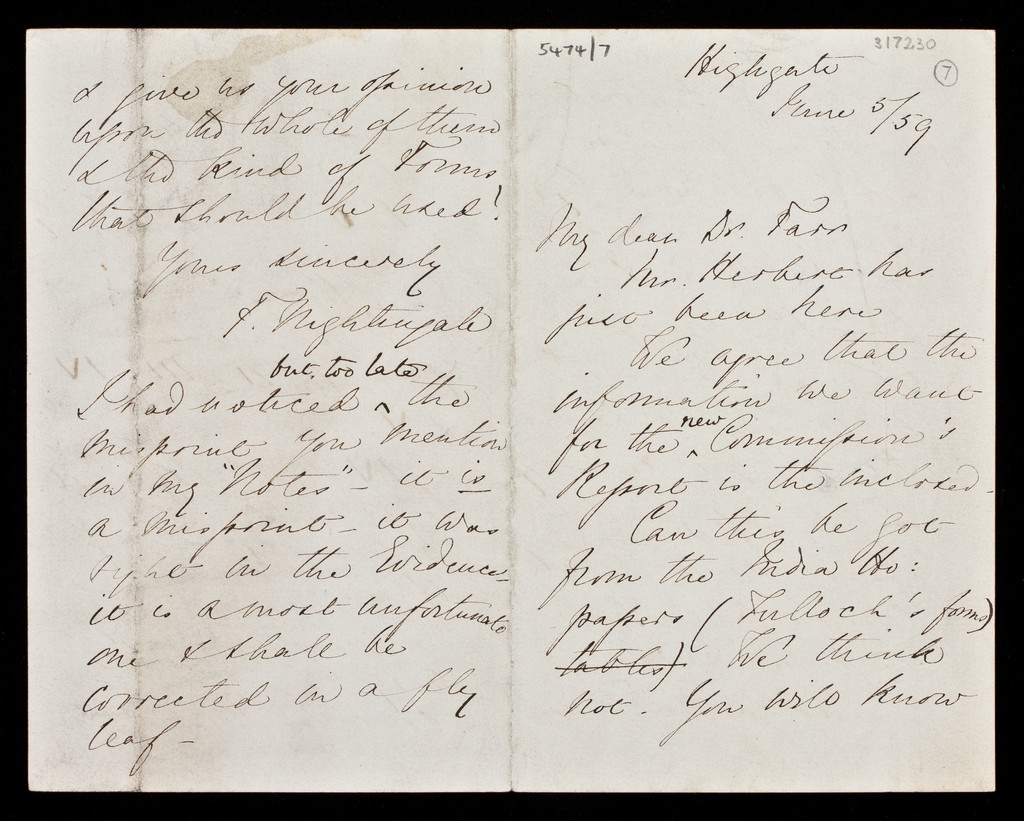 5474/7
317230
7
Highgate
June 5/59
My dear Dr. Farr
Mr. Herbert has
just been here
We agree that the
information we want
for the new Commission's
Report is the inclosed.
Can this be got
from the India Ho:
papers (Tulloch's forms)
tables) We think
not. You will know
& give us your opinion
upon the whole of them
& the kind of Forms
that should be used!
Yours sincerely
F. Nightingale
but too late
I had noticed ^ the
misprint you mention
in my "Notes" - it is
a misprint - it was
right in the Evidence -
it is a most unfortunate
one & shall be
corrected in a fly
leaf -